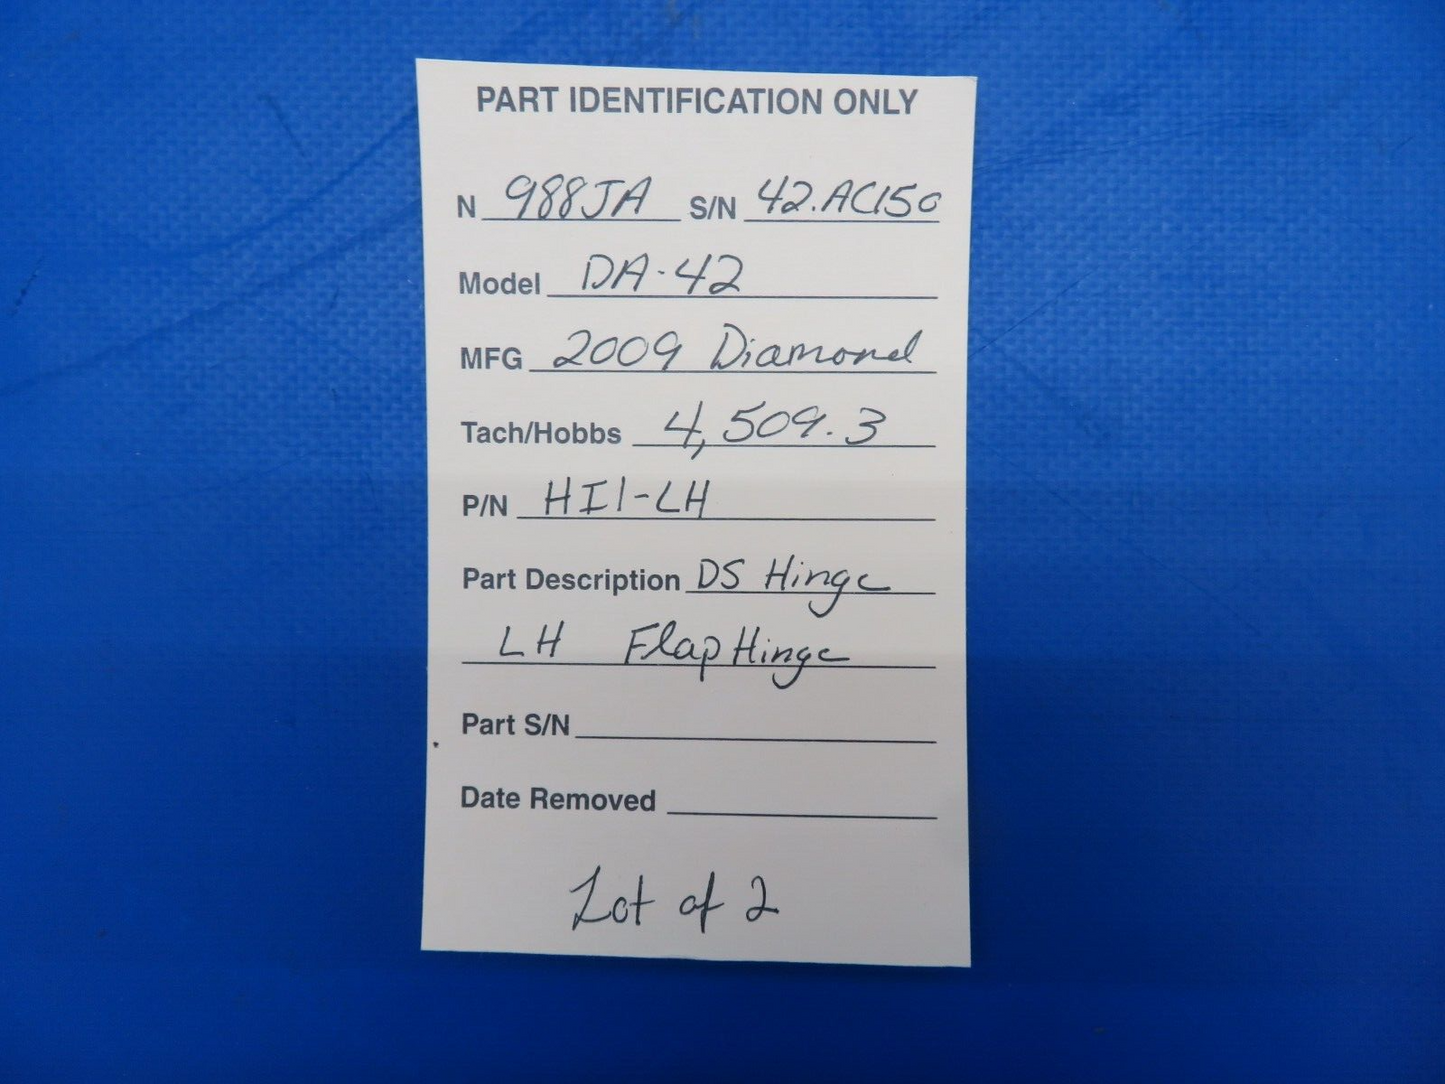 PART IDENTIFICATION ONLY
N 988JA S/N 42.AC150
Model DA-42
MFG 2009 Diamond
Tach/Hobbs 4,509.3
P/N HI1-LH
Part Description DS Hinge
LH Flap Hinge
Part S/N
Date Removed
Lot of 2